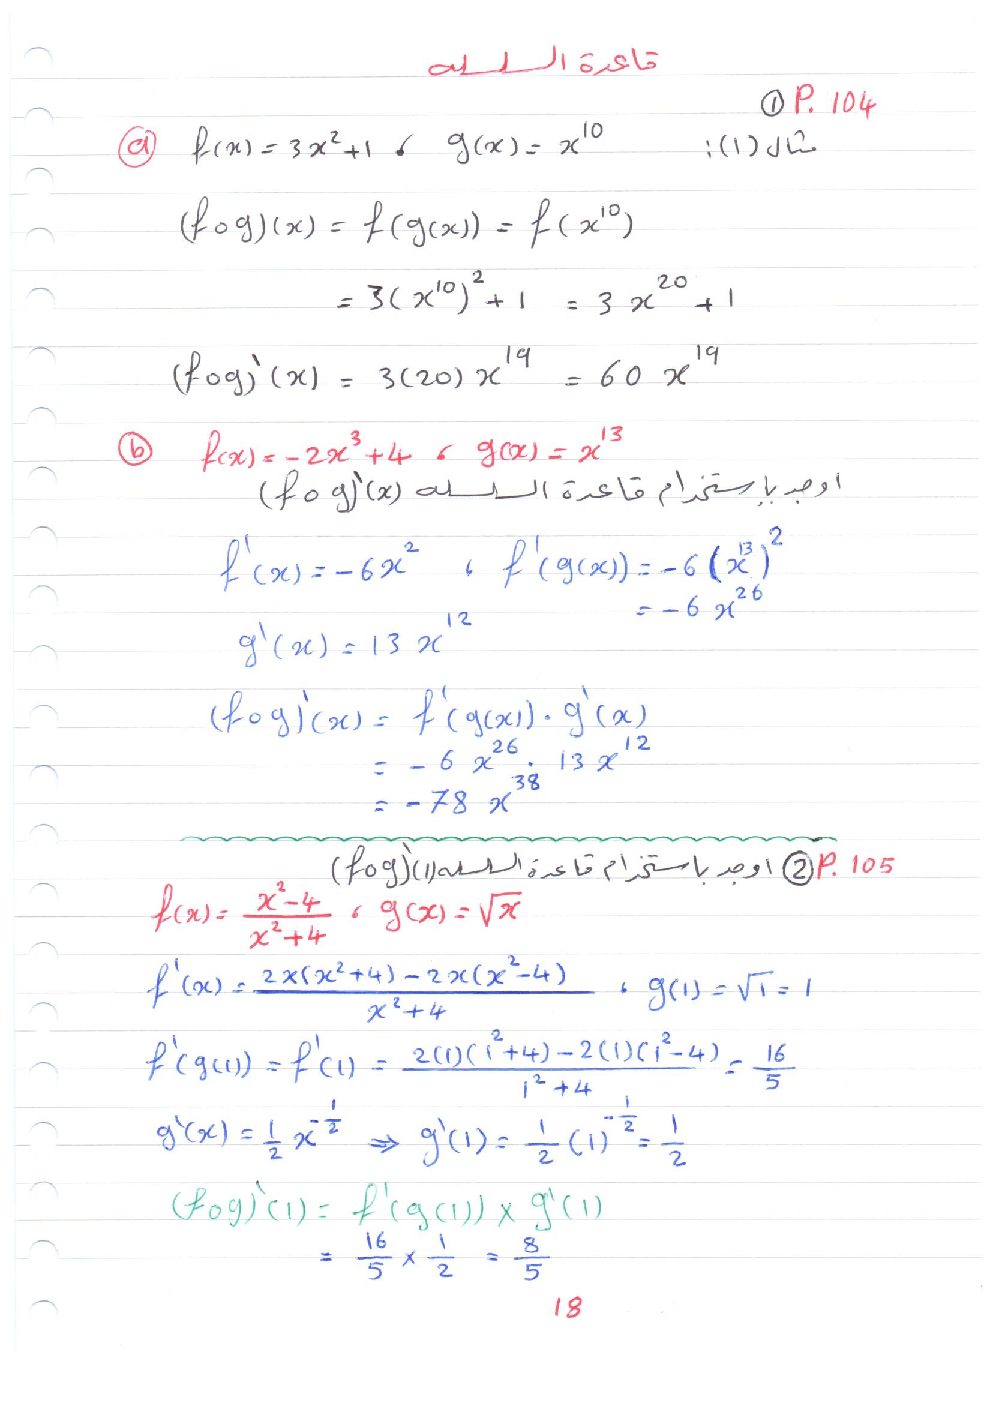 قاعدة السلسله
① P. 104
مثال (1): ⓐ f(x) = 3x²+1 ، g(x) = x¹⁰
(fog)(x) = f(g(x)) = f(x¹⁰)
= 3(x¹⁰)² + 1 = 3x²⁰ + 1
(fog)'(x) = 3(20)x¹⁹ = 60 x¹⁹
ⓑ f(x) = -2x³+4 ، g(x) = x¹³
اوجد بإستخدام قاعدة السلسله (fog)'(x)
f'(x) = -6x² ، f'(g(x)) = -6(x¹³)²
= -6 x²⁶
g'(x) = 13 x¹²
(fog)'(x) = f'(g(x)) . g'(x)
= -6 x²⁶ . 13 x¹²
= -78 x³⁸
P. 105 ② اوجد باستخدام قاعدة السلسله (fog)'(1)
f(x) = (x²-4)/(x²+4) ، g(x) = √x
f'(x) = (2x(x²+4) - 2x(x²-4))/(x²+4) ، g(1) = √1 = 1
f'(g(1)) = f'(1) = (2(1)(1²+4) - 2(1)(1²-4))/(1²+4) = 16/5
g'(x) = 1/2 x^(-1/2) ⇒ g'(1) = 1/2 (1)^(-1/2) = 1/2
(fog)'(1) = f'(g(1)) × g'(1)
= 16/5 × 1/2 = 8/5
18